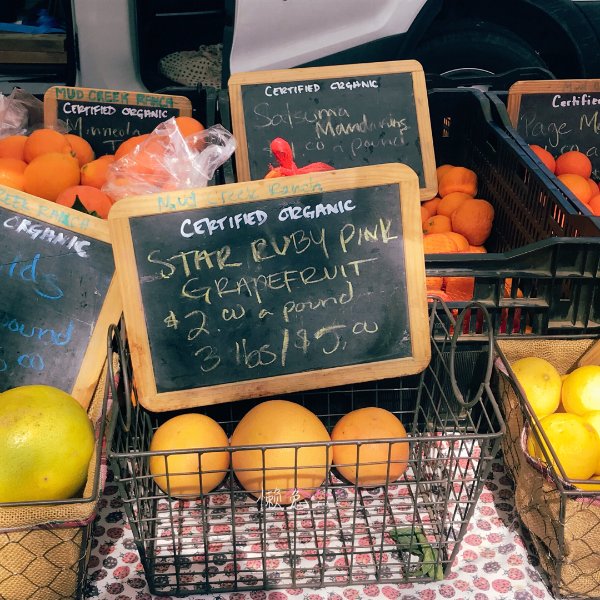 MUD CREEK RANCH
CERTIFIED ORGANIC
Minneola
CERTIFIED ORGANIC
Satsuma
Mandarins
a pound
Certified
Page
CERTIFIED ORGANIC
pound
Mud Creek Ranch
CERTIFIED ORGANIC
STAR RUBY PINK
GRAPEFRUIT
$2.00 a pound
3 lbs/$5.00